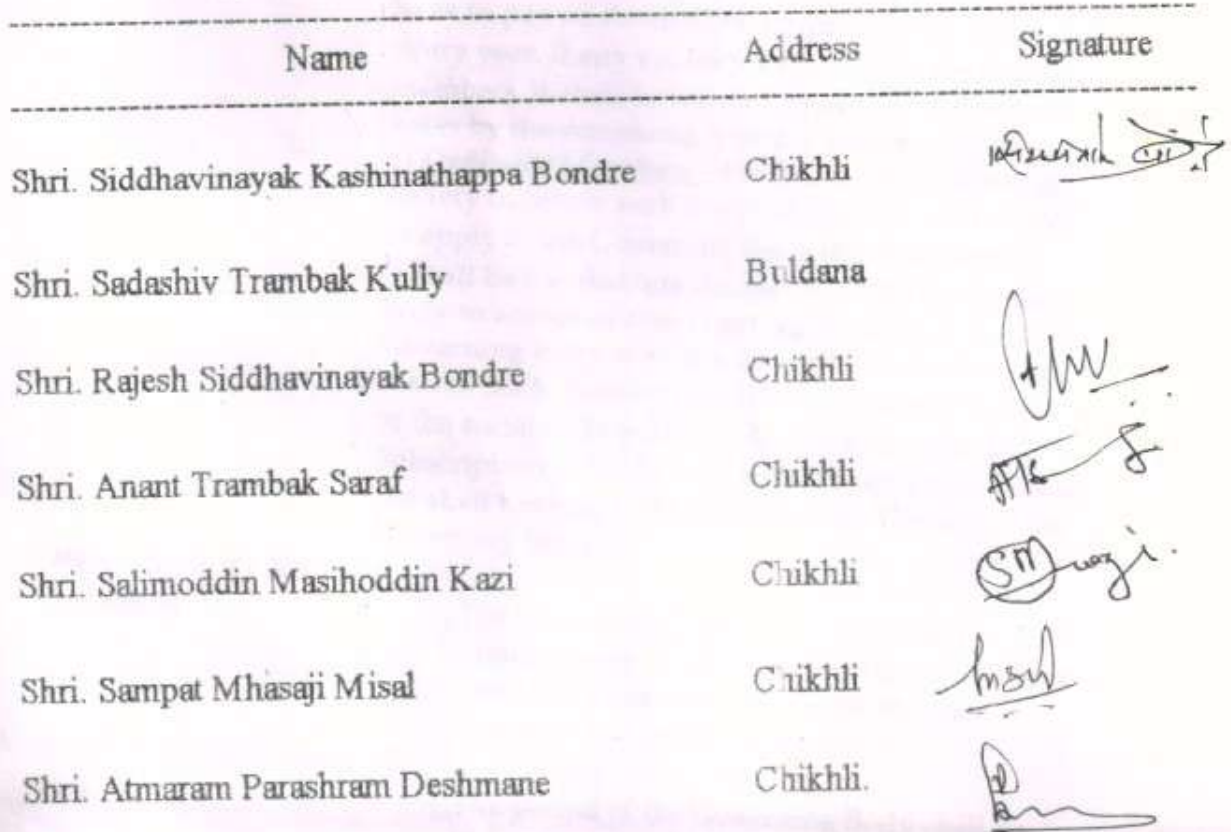 Name Address Signature
Shri. Siddhavinayak Kashinathappa Bondre Chikhli
Shri. Sadashiv Trambak Kully Buldana
Shri. Rajesh Siddhavinayak Bondre Chikhli
Shri. Anant Trambak Saraf Chikhli
Shri. Salimoddin Masihoddin Kazi Chikhli
Shri. Sampat Mhasaji Misal Chikhli
Shri. Atmaram Parashram Deshmane Chikhli.